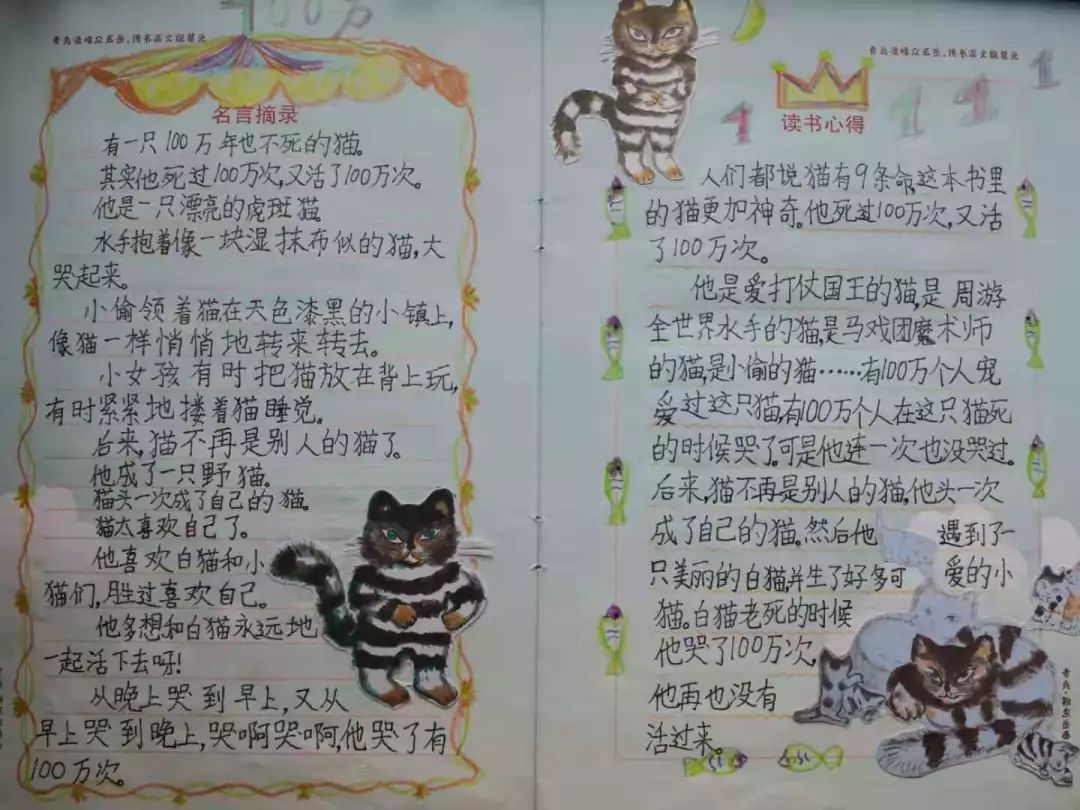 100万
名言摘录
有一只100万年也不死的猫。
其实他死过100万次,又活了100万次。
他是一只漂亮的虎斑猫
水手抱着像一块湿抹布似的猫,大
哭起来。
小偷领着猫在天色漆黑的小镇上,
像猫一样悄悄地转来转去。
小女孩有时把猫放在背上玩,
有时紧紧地搂着猫睡觉。
后来,猫不再是别人的猫了。
他成了一只野猫。
猫头一次成了自己的猫。
猫太喜欢自己了。
他喜欢白猫和小
猫们,胜过喜欢自己。
他多想和白猫永远地
一起活下去呀!
从晚上哭到早上,又从
早上哭到晚上,哭啊哭啊,他哭了有
100万次。
1 1 1 1
读书心得
人们都说猫有9条命,这本书里
的猫更加神奇。他死过100万次,又活
了100万次。
他是爱打仗国王的猫,是周游
全世界水手的猫,是马戏团魔术师
的猫,是小偷的猫……有100万个人宠
爱过这只猫,有100万个人在这只猫死
的时候哭了。可是他连一次也没哭过。
后来,猫不再是别人的猫,他头一次
成了自己的猫。然后他遇到了一
只美丽的白猫,并生了好多可爱的小
猫。白猫老死的时候
他哭了100万次,
他再也没有
活过来。